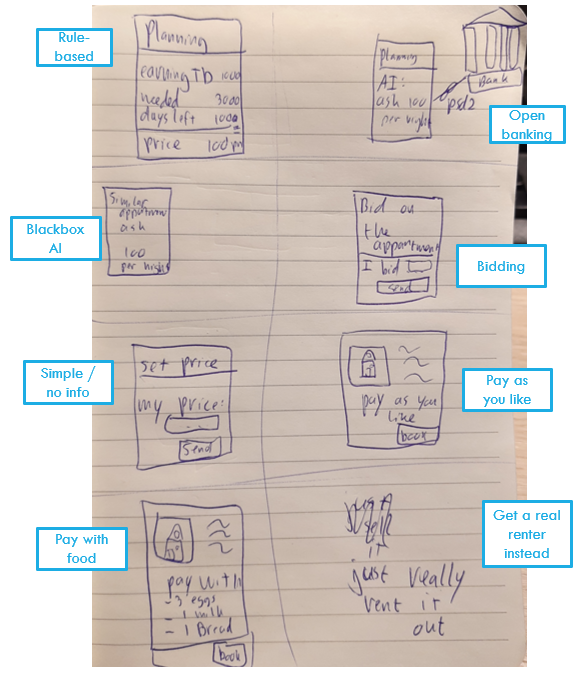 Rule-
based
Planning
earning Tb 1000
needed 3000
days left 1000
price 100 pn
planning
AI:
ask 100
per night
Bank
psd2
Open
banking
Blackbox
AI
Similar
appartment
ask
100
per night
Bid on
the
appartment
I bid
send
Bidding
Simple /
no info
set price
my price:
...
Send
pay as you
like
book
Pay as
you like
Pay with
food
pay with
- 3 eggs
- 1 milk
- 1 Bread
book
it
just really
rent it
out
Get a real
renter
instead